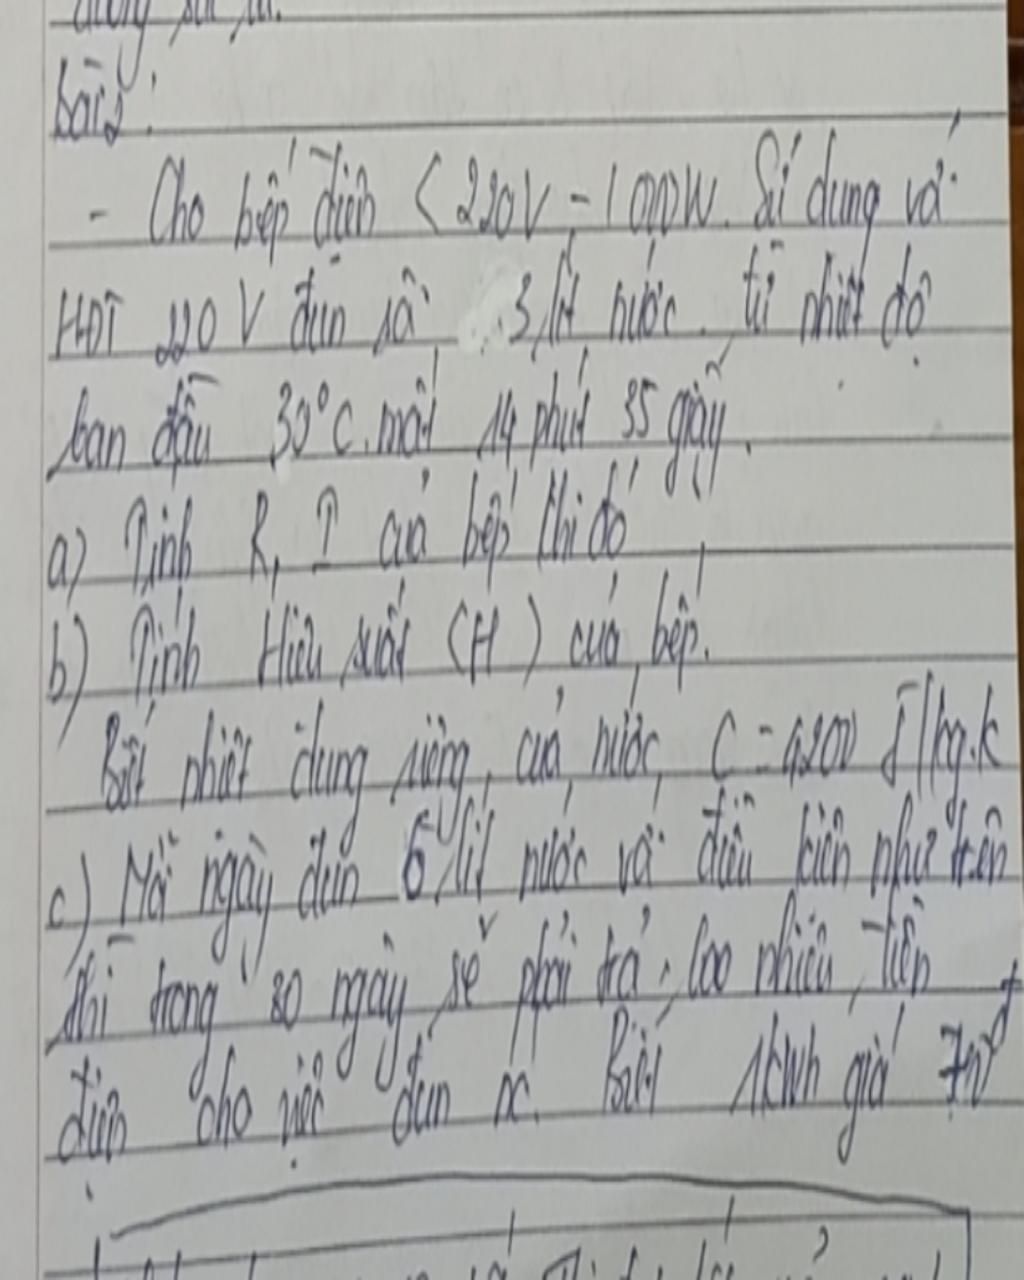 bài 2:
- Cho bếp điện < 220V - 1000W. Sử dụng với
HĐT 220V đun sôi 3 lít nước từ nhiệt độ
ban đầu 30°C. mất 14 phút 35 giây.
a) Tính R, I của bếp khi đó
b) Tính Hiệu suất (H) của bếp.
Biết nhiệt dung riêng của nước C = 4200 J/kg.k
c) Mỗi ngày đun 6 lít nước với điều kiện như trên
thì trong 30 ngày sẽ phải trả bao nhiêu tiền
điện cho việc đun nc. Biết 1kWh giá 700đ